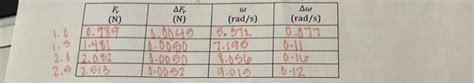 F_r (N) ΔF_r (N) ω (rad/s) Δω (rad/s)
1.0 0.989 0.0045 5.372 0.077
1.5 1.481 0.0050 7.195 0.11
2.0 2.032 0.0050 8.056 0.16
2.5 2.513 0.0052 9.015 0.12